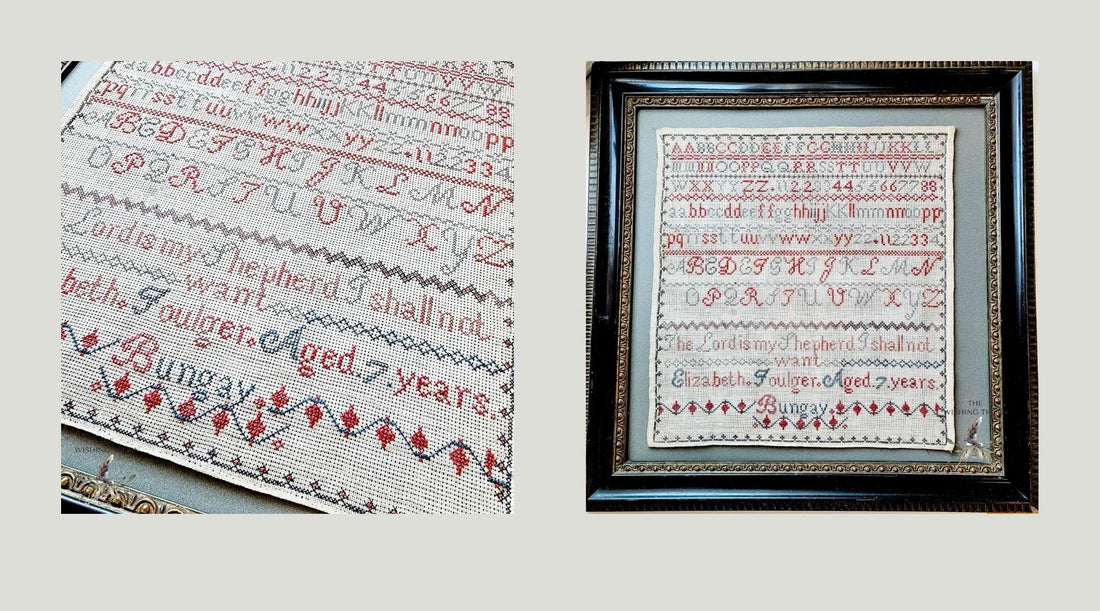 11 22 33 44 55 66 77 88
aabbccddeeffgghhiijjKKllmmnnoopp
pqrrssttuuvvwwxxyyzz.11 22 33 4
ABCDEFGHIJKLMN
OPQRSTUVWXYZ
Lord is my Shepherd I shall not
want
beth. Foulger. Aged 7 years.
Bungay
AABBCCDDEEFFGGHHIIJJKKLL
MMNNOOPPQQRRSSTTUUVVW
WXXYYZZ.11 22 33 44 55 66 77 88
aabbccddeeffgghhiijjKKllmmnnoopp
pqrrssttuuvvwwxxyyzz.11 22 33 4
ABCDEFGHIJKLMN
OPQRSTUVWXYZ
The Lord is my Shepherd I shall not
want
Elizabeth. Foulger. Aged. 7. years.
Bungay.
THE
WISHING TH